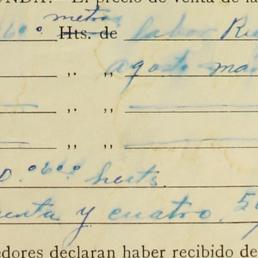 NDA: El precio de venta de la
metros
60° Hts. de labor Ri
" " agosto ma
" "
" "
0.°60.° herts.
enta y cuatro. 5
edores declaran haber recibido de